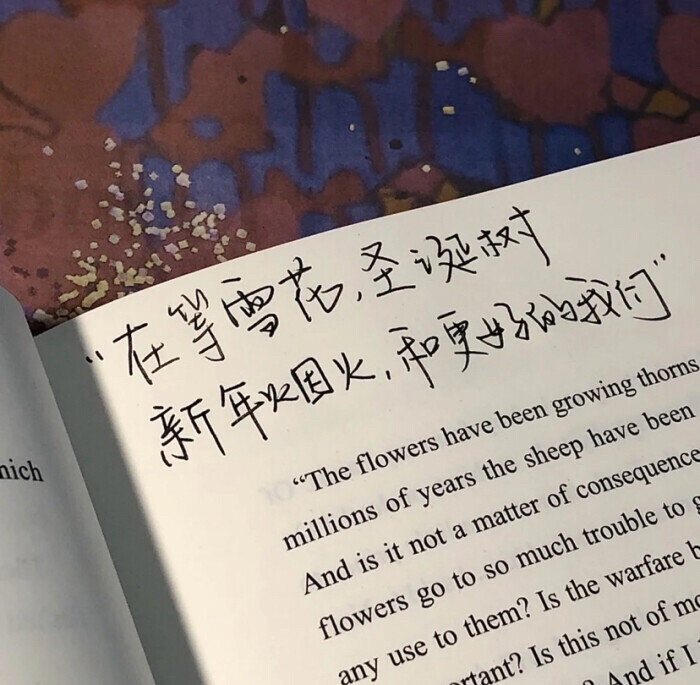 “在等雪花,圣诞树
新年烟火,和更好的我们”
nich
“The flowers have been growing thorns
millions of years the sheep have been
And is it not a matter of consequence
flowers go to so much trouble to g
any use to them? Is the warfare b
rtant? Is this not of mo
? And if I